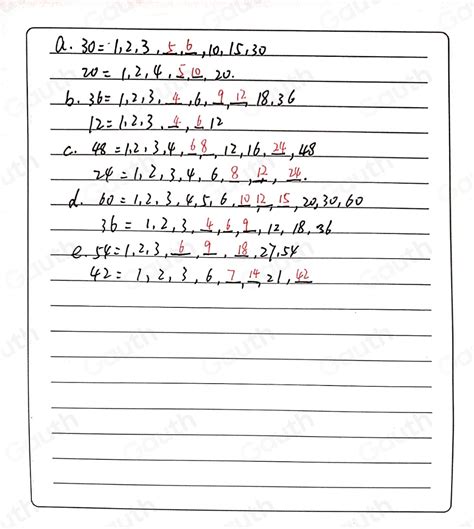 a. 30=1,2,3,5,6,10,15,30
20=1,2,4,5,10,20.
b. 36=1,2,3,4,6,9,12,18,36
12=1,2,3,4,6,12
c. 48=1,2,3,4,6,8,12,16,24,48
24=1,2,3,4,6,8,12,24.
d. 60=1,2,3,4,5,6,10,12,15,20,30,60
36=1,2,3,4,6,9,12,18,36
e. 54=1,2,3,6,9,18,27,54
42=1,2,3,6,7,14,21,42